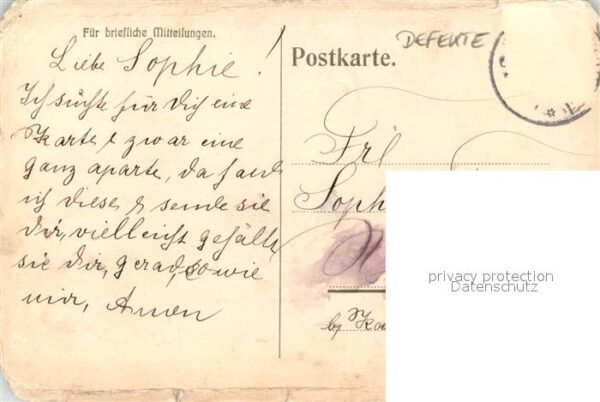 Für briefliche Mitteilungen.
Liebe Sophie!
Ich suchte für Dich eine
Karte & zwar eine
ganz aparte, da fand
ich diese & sende sie
Dir, vielleicht gefällt
sie Dir, gerad so wie
mir, Amen
Postkarte.
DEFEKTE
Frl
Soph
by Ka
privacy protection
Datenschutz